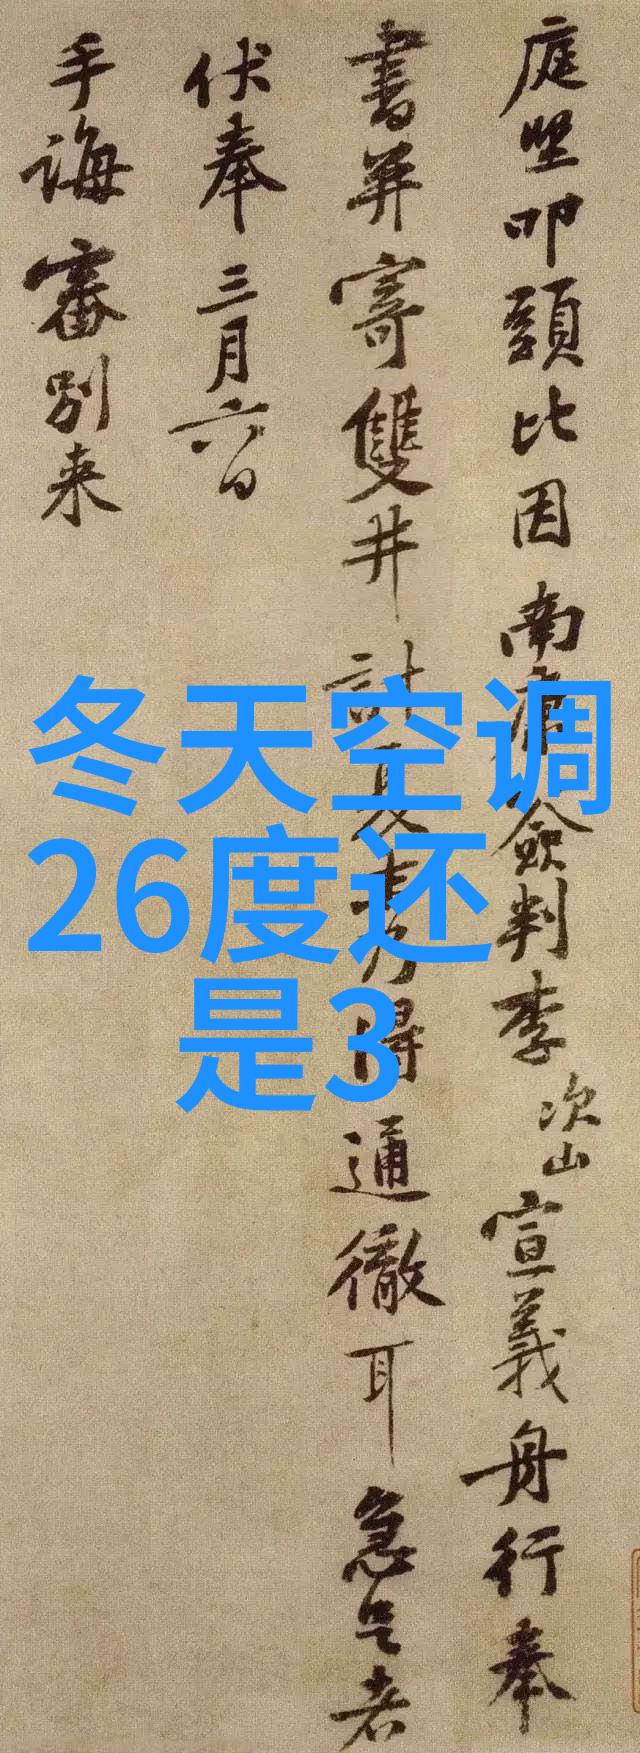 庭堅叩頭比因南康僉判李次山宣義舟行奉
書并寄雙井計夏末乃得通徹耳急足者
伏奉三月六日
手誨審別来
冬天空调
26度还
是3